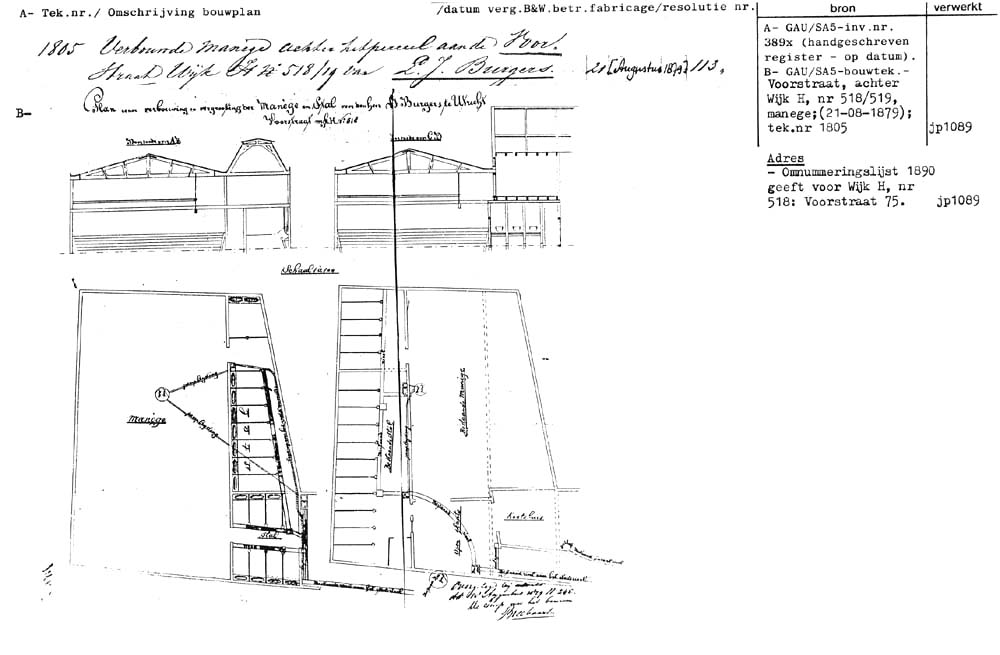 A- Tek.nr./ Omschrijving bouwplan
/datum verg.B&W.betr.fabricage/resolutie nr.
bron
verwerkt
1805 Verbouwde manège achter het perceel aan de Voor.
Straat Wijk H No 518/19 van P. J. Burgers.
21 [Augustus 1879] 113,
A- GAU/SA5-inv.nr.
389x (handgeschreven
register - op datum).
B- GAU/SA5-bouwtek.-
Voorstraat, achter
Wijk H, nr 518/519,
manege;(21-08-1879);
tek.nr 1805
jp1089
Adres
- Omnummeringslijst 1890
geeft voor Wijk H, nr
518: Voorstraat 75.
jp1089
B-
Plan van verbouwing en vergrooting der Manége en Stal van den Heer Burgers te Utrecht
Voorstraat wijk H No 518
Doorsnede over A B
Doorsnede over C D
Schaal 1 à 100
Manège
Stal
Bestaande Stal
Bestaande Manége
Open plaats
Koetshuis